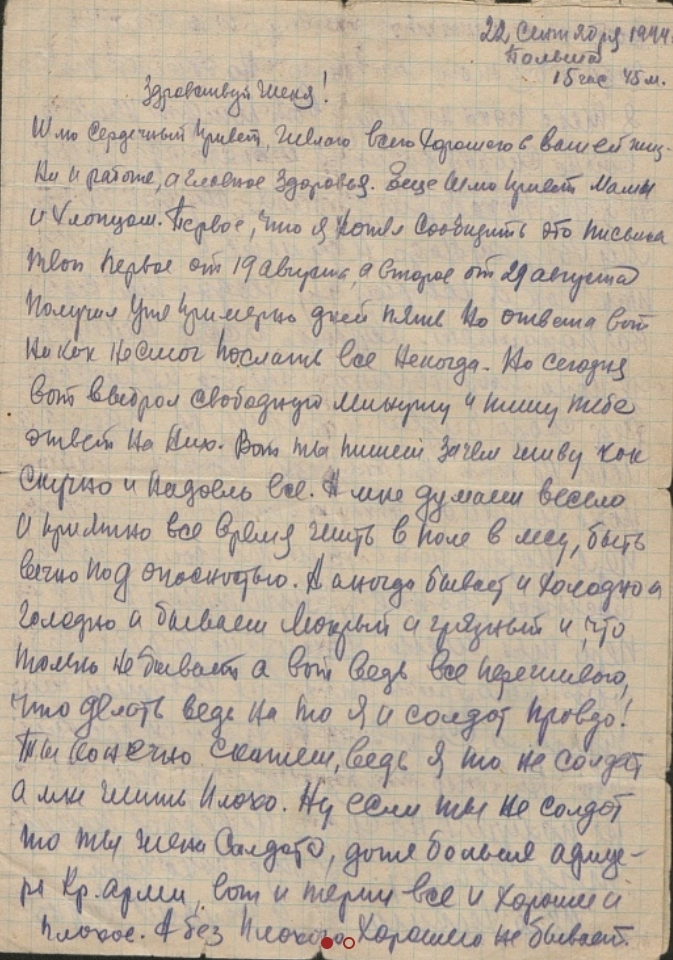 22 Сентября 1944.
Польша
15 час 45 м.
Здравствуй Женя!
Шлю Сердечный привет, желаю всего Хорошего в вашей жиз-
ни и работе, а главное здоровья. Еще Шлю привет Мамы
и Хлопцам. Первое, что я хотел сообщить это письма
твои первое от 19 августа, а второе от 29 августа
Получил уже примерно дней пять но ответа вот
Ни как не смог послать все некогда. Но сегодня
вот выбрал свободную минуту и пишу тебе
ответ на них. Вот ты пишеш зачем живу как
скучно и надоель все. А мне думаеш весело
и приятно все время жить в поле в лесу, быть
вечно под опасностью. А аногда бывает и холодно и
голодно и бываеш мокрый и грязный и что
только не бывает а вот ведь все переживаю,
что делать ведь на то я и солдат правдо!
Ты конечно скажеш, ведь я то не солдат
а мне жить плохо. Ну если ты не солдат
то ты жена Солдата, даже больше афице-
ра Кр. арми, вот и терпи все и хорошее и
плохое. А без плохого Хорошего не бывает.